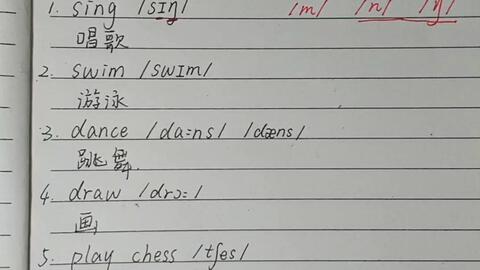 1. sing /sɪŋ/ /m/ /n/ /ŋ/
唱歌
2. swim /swɪm/
游泳
3. dance /dɑːns/ /dæns/
跳舞.
4. draw /drɔː/
画
5. play chess /tʃes/